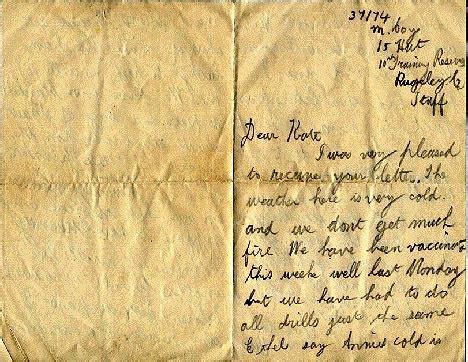 37174
M. Day
15 Hut
10th Training Reserve
Rugeley
Staff
Dear Kate
I was very pleased
to receive your lett. The
weather here is very cold.
and we dont get much
fire We have been vaccinat
this week well last Monday
but we have had to do
all drills just the same
Ethel say Annies cold is